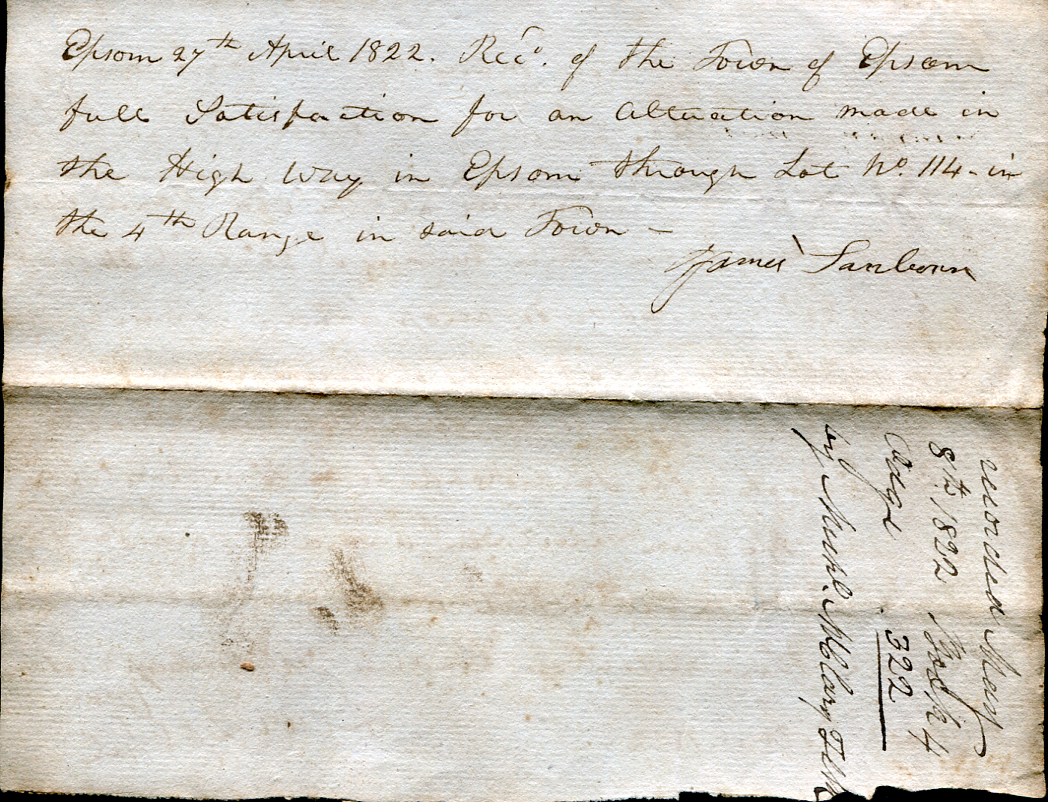 Epsom 27th April 1822. Recd. of the Town of Epsom
full Satisfaction for an alteration made in
the High Way in Epsom through Lot No. 114 - in
the 4th Range in said Town -
James Sanborn
recorded May
8th 1822 Book 4
Page 322
by Michl. McClary T Clk